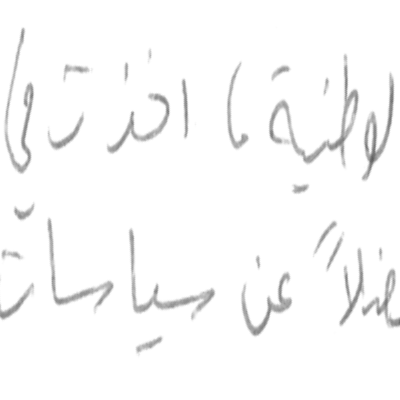 لوطنية ما اخذت
فضلاً عن سياسات